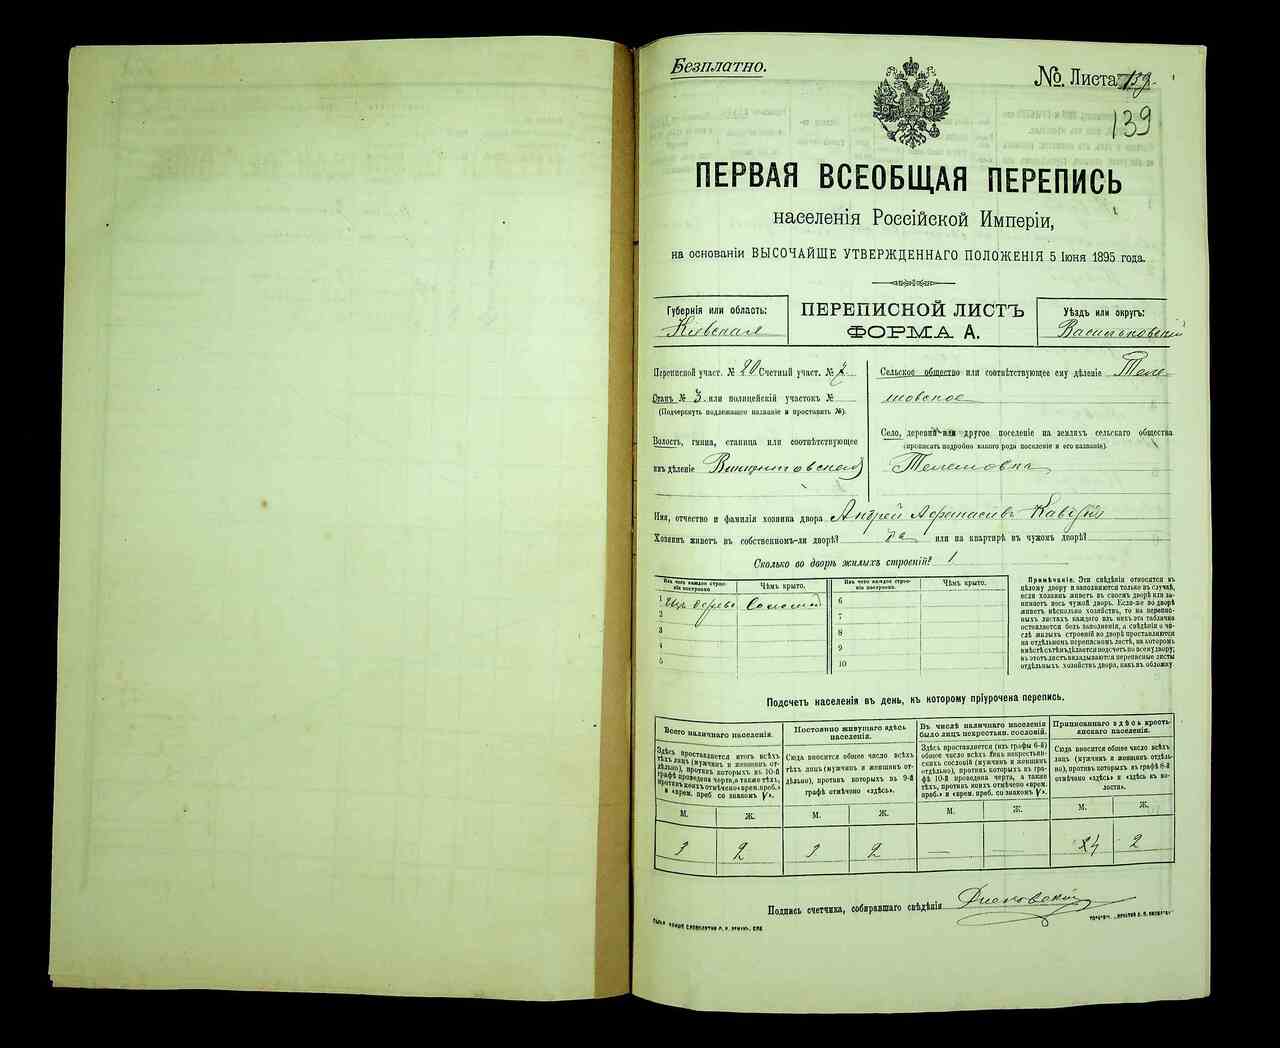 Безплатно.
№ Листа 139
139
ПЕРВАЯ ВСЕОБЩАЯ ПЕРЕПИСЬ
населенія Россійской Имперіи,
на основаніи ВЫСОЧАЙШЕ УТВЕРЖДЕННАГО ПОЛОЖЕНІЯ 5 Іюня 1895 года.
Губернія или область:
Кіевская
ПЕРЕПИСНОЙ ЛИСТЪ
ФОРМА А.
Уѣздъ или округъ:
Васильковскій
Переписной участ. № 20 Счетный участ. №
Станъ № 3. или полицейскій участокъ №
(Подчеркнуть надлежащее названіе и проставить №).
Волость, гмина, станица или соотвѣтствующее
имъ дѣленіе Винцентовская
Сельское общество или соотвѣтствующее ему дѣленіе Теле-
шовское
Село, деревня или другое поселеніе на земляхъ сельскаго общества
(прописать подробно какого рода поселеніе и его названіе).
Телешовка
Имя, отчество и фамилія хозяина двора Андрей Афанасіевъ
Хозяинъ живетъ въ собственномъ-ли дворѣ? да или на квартирѣ въ чужомъ дворѣ?
Сколько во дворѣ жилыхъ строеній? 1
Изъ чего каждое строе-
ніе построено
Чѣмъ крыто.
Изъ чего каждое строе-
ніе построено
Чѣмъ крыто.
1 Изъ дерева Соломой
2
3
4
5
6
7
8
9
10
Примѣчаніе. Эти свѣдѣнія относятся къ
цѣлому двору и заполняются только въ случаѣ,
если хозяинъ живетъ въ своемъ дворѣ или за-
нимаетъ весь чужой дворъ. Если-же во дворѣ
живетъ нѣсколько хозяйствъ, то на перепис-
ныхъ листахъ каждаго изъ нихъ эта табличка
оставляется безъ заполненія, а свѣдѣнія о чи-
слѣ жилыхъ строеній во дворѣ проставляются
на отдѣльномъ переписномъ листѣ, на которомъ
вмѣстѣ съ тѣмъ дѣлается подсчетъ по всему двору;
въ этотъ листъ вкладываются переписные листы
отдѣльныхъ хозяйствъ двора, какъ въ обложку.
Подсчетъ населенія въ день, къ которому пріурочена перепись.
Всего наличнаго населенія.
Здѣсь проставляется итогъ всѣхъ
тѣхъ лицъ (мужчинъ и женщинъ от-
дѣльно), противъ которыхъ въ 10-й
графѣ проведена черта, а также тѣхъ,
противъ коихъ отмѣчено «врем. преб.»
и «врем. преб. со знакомъ V».
Постоянно живущаго здѣсь
населенія.
Сюда вносится общее число всѣхъ
тѣхъ лицъ (мужчинъ и женщинъ от-
дѣльно), противъ которыхъ въ 9-й
графѣ отмѣчено «здѣсь».
Въ числѣ наличнаго населенія
было лицъ некрестьян. сословій.
Здѣсь проставляется (изъ графы 6-й)
общее число всѣхъ лицъ некрестьян-
скихъ сословій (мужчинъ и женщинъ
отдѣльно), противъ которыхъ въ гра-
фѣ 10-й проведена черта, а также
тѣхъ, противъ коихъ отмѣчено «врем.
преб.» и «врем. преб. со знакомъ V».
Приписаннаго здѣсь кресть-
янскаго населенія.
Сюда вносится общее число всѣхъ
лицъ (мужчинъ и женщинъ отдѣль-
но), противъ которыхъ въ графѣ 8-й
отмѣчено «здѣсь» и «здѣсь въ во-
лости».
М. Ж. М. Ж. М. Ж. М. Ж.
3 2 3 2 — — 4 2
Подпись счетчика, собиравшаго свѣдѣнія